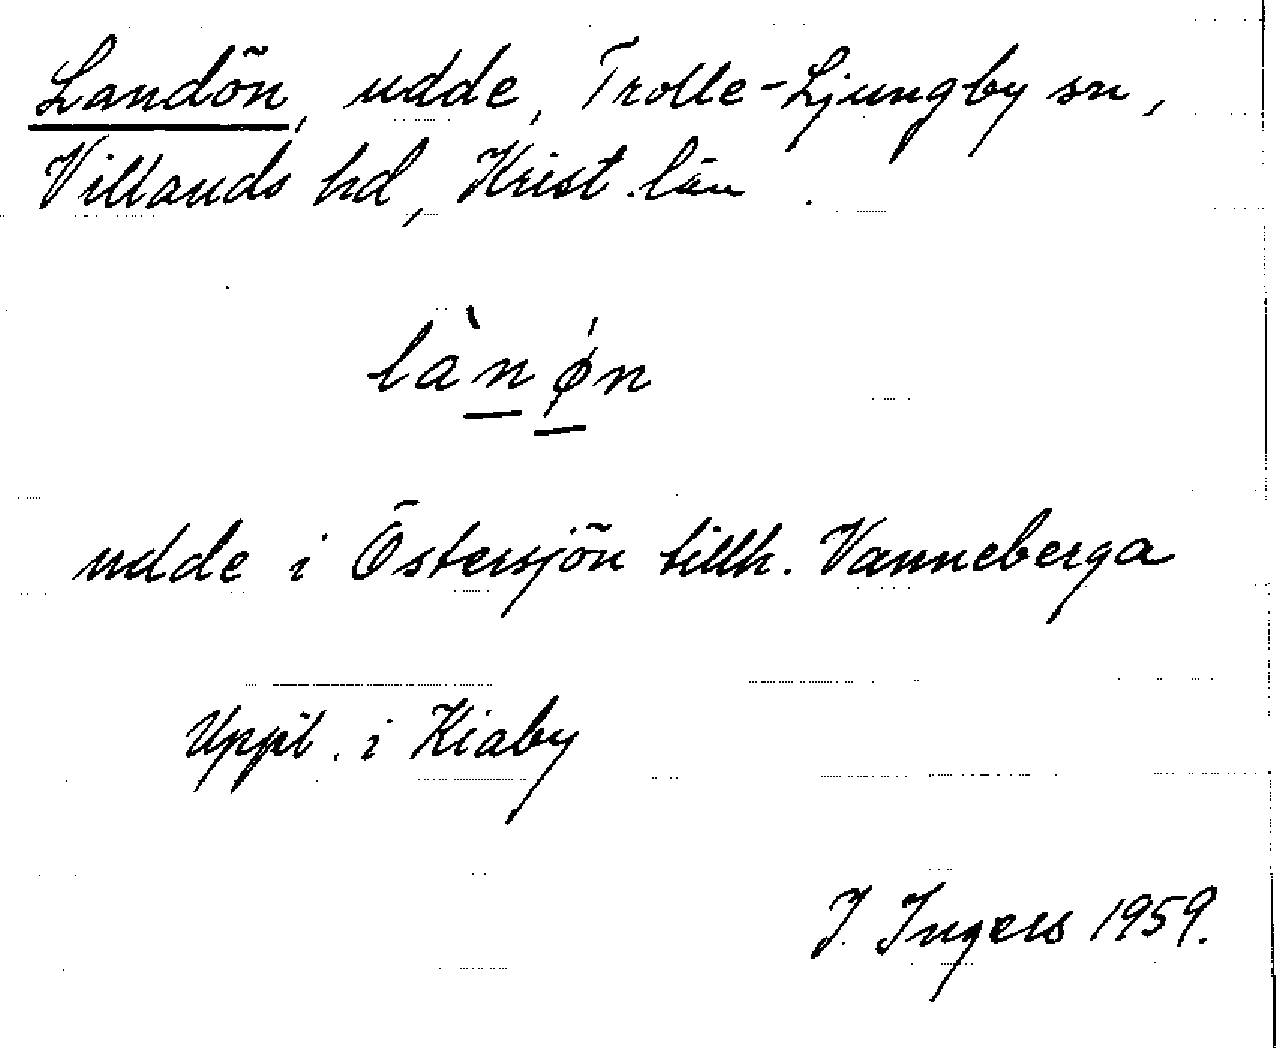 Landön, udde, Trolle-Ljungby sn,
Villands hd, Krist. län.
làn ǿn
udde i Östersjön tillh. Vanneberga
Uppt. i Kiaby
I. Ingers 1959.